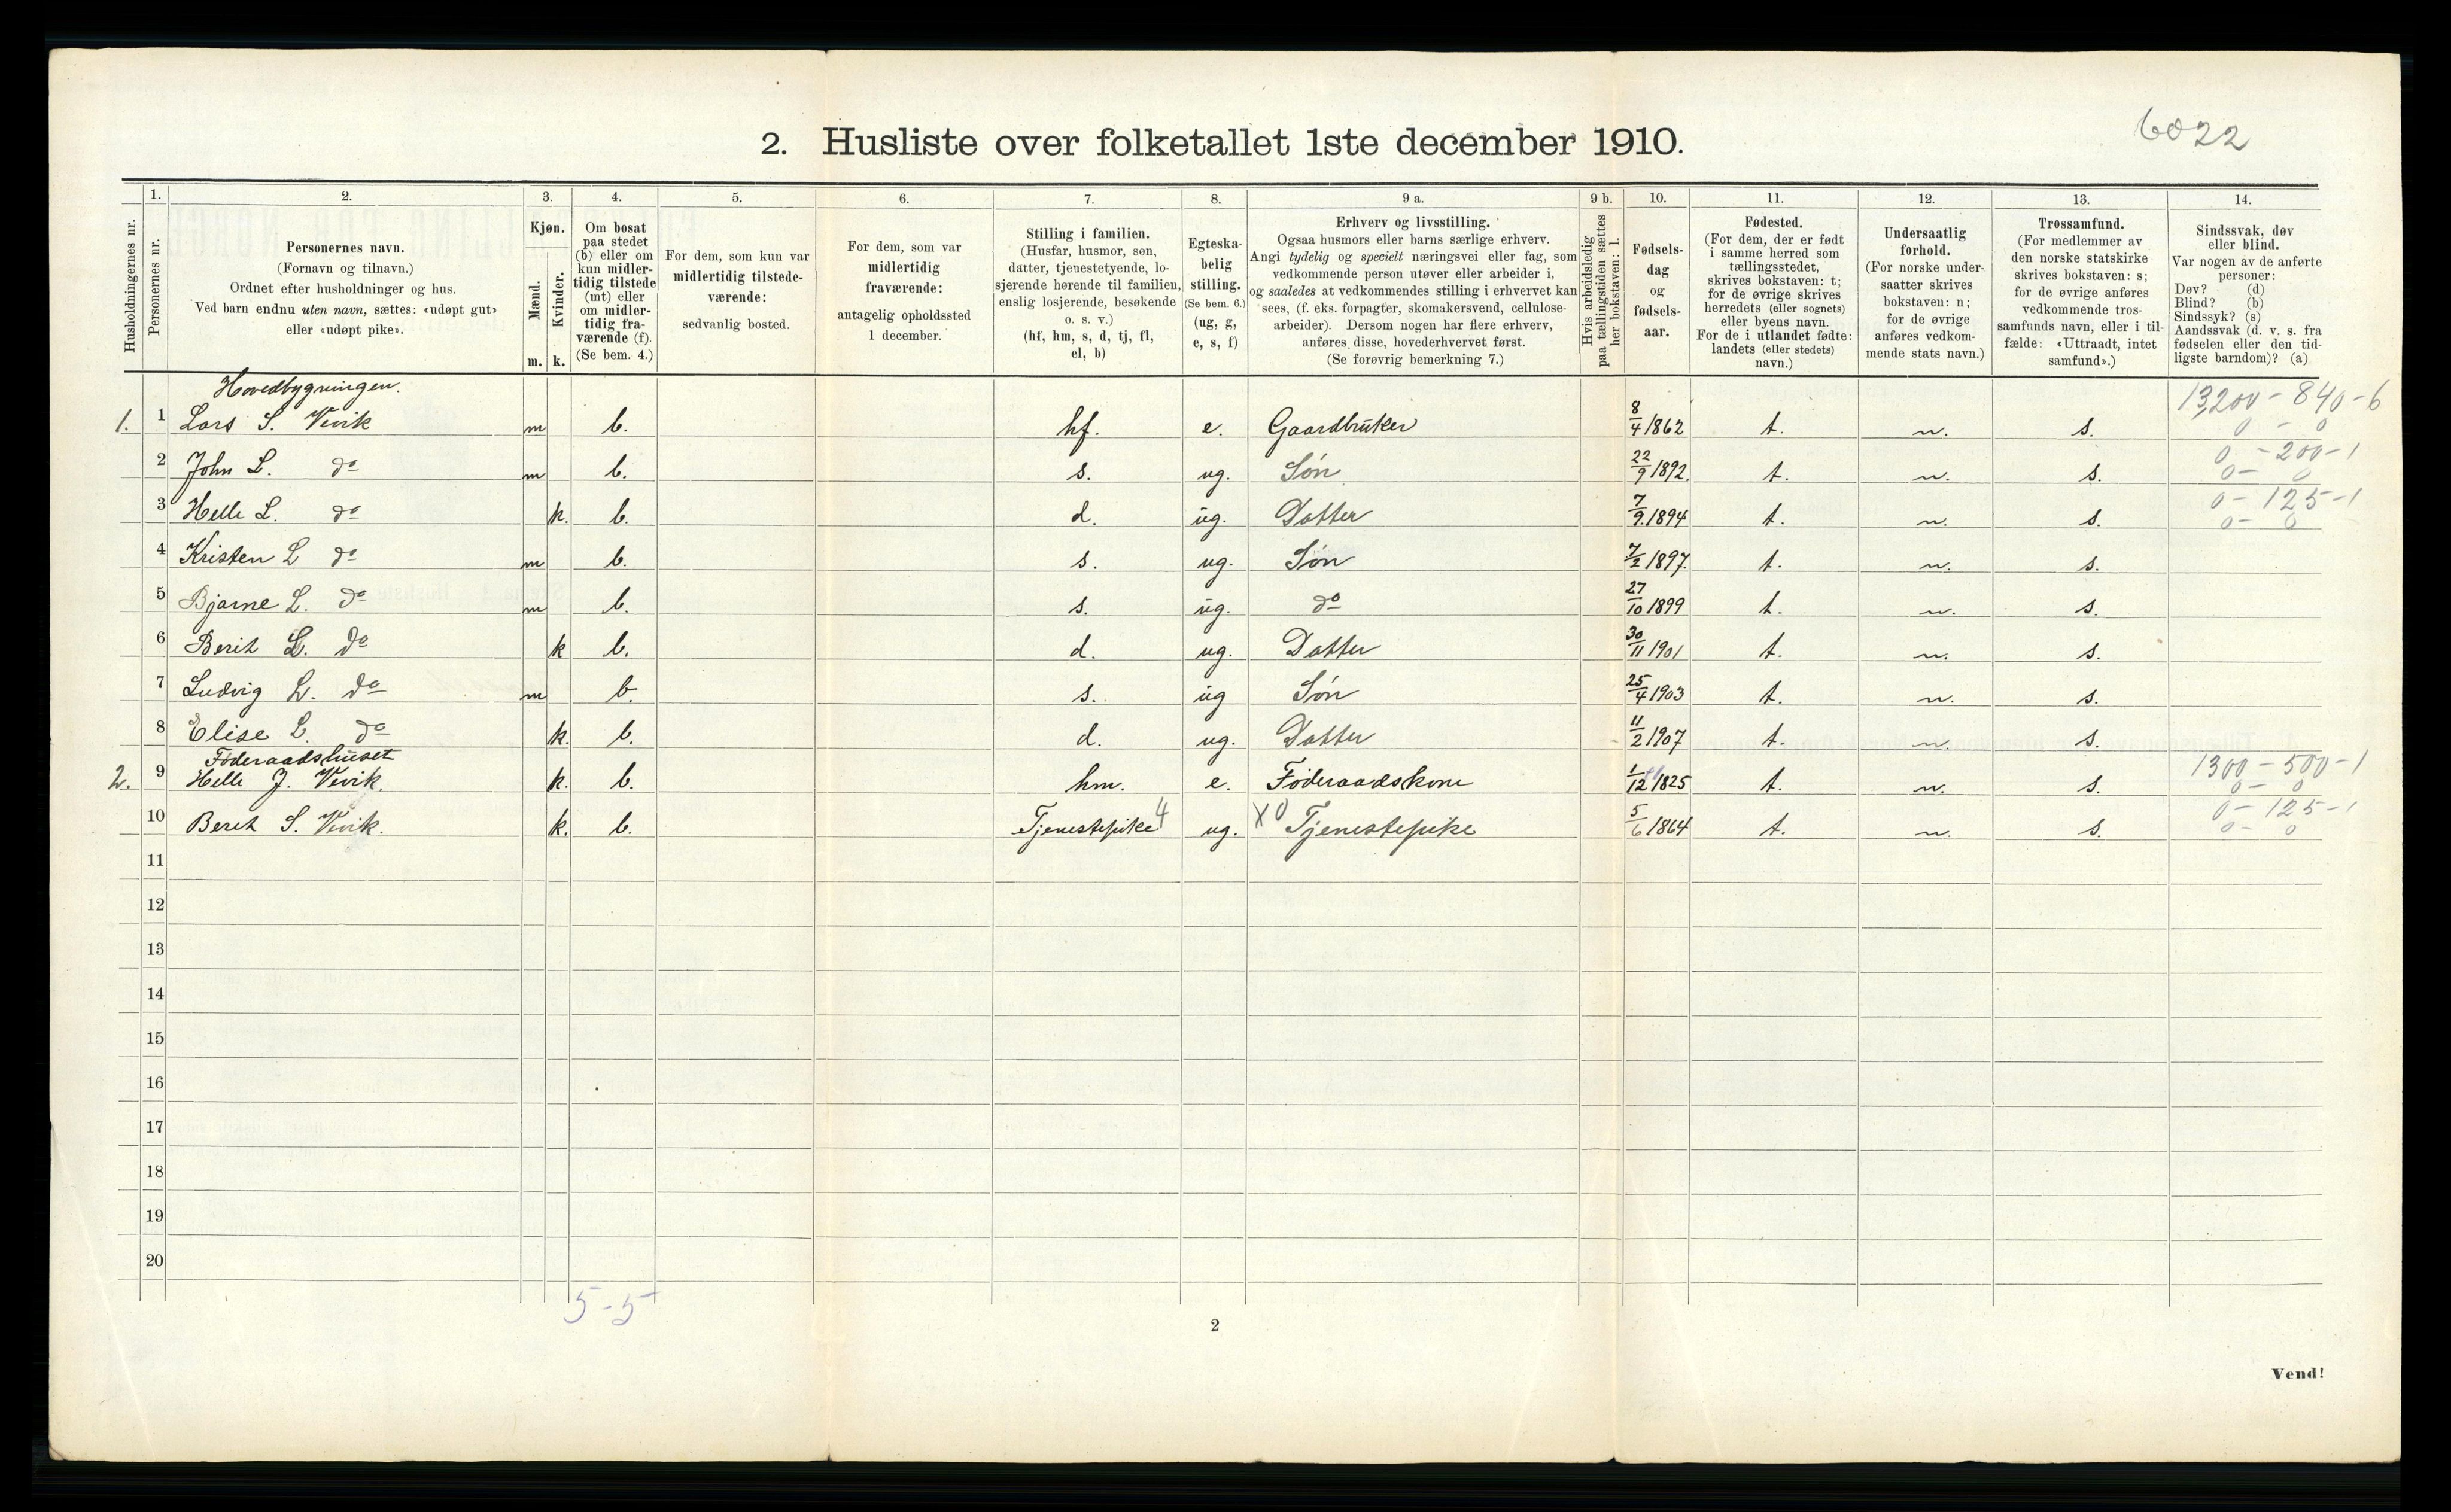 6022
2. Husliste over folketallet 1ste december 1910.
Husholdningernes nr.
1. Personernes nr.
2. Personernes navn.
(Fornavn og tilnavn.)
Ordnet efter husholdninger og hus.
Ved barn endnu uten navn, sættes: «udøpt gut»
eller «udøpt pike».
3. Kjøn.
Mænd. m.
Kvinder. k.
4. Om bosat
paa stedet
(b) eller om
kun midler-
tidig tilstede
(mt) eller
om midler-
tidig fra-
værende (f).
(Se bem. 4.)
5. For dem, som kun var
midlertidig tilstede-
værende:
sedvanlig bosted.
6. For dem, som var
midlertidig
fraværende:
antagelig opholdssted
1 december.
7. Stilling i familien.
(Husfar, husmor, søn,
datter, tjenestetyende, lo-
sjerende hørende til familien,
enslig losjerende, besøkende
o. s. v.)
(hf, hm, s, d, tj, fl,
el, b)
8. Egteska-
belig
stilling.
(Se bem. 6.)
(ug, g,
e, s, f)
9 a. Erhverv og livsstilling.
Ogsaa husmors eller barns særlige erhverv.
Angi tydelig og specielt næringsvei eller fag, som
vedkommende person utøver eller arbeider i,
og saaledes at vedkommendes stilling i erhvervet kan
sees, (f. eks. forpagter, skomakersvend, cellulose-
arbeider). Dersom nogen har flere erhverv,
anføres disse, hovederhvervet først.
(Se forøvrig bemerkning 7.)
9 b. Hvis arbeidsledig
paa tællingstiden sættes
her bokstaven: l.
10. Fødsels-
dag
og
fødsels-
aar.
11. Fødested.
(For dem, der er født
i samme herred som
tællingsstedet,
skrives bokstaven: t;
for de øvrige skrives
herredets (eller sognets)
eller byens navn.
For de i utlandet fødte:
landets (eller stedets)
navn.)
12. Undersaatlig
forhold.
(For norske under-
saatter skrives
bokstaven: n;
for de øvrige
anføres vedkom-
mende stats navn.)
13. Trossamfund.
(For medlemmer av
den norske statskirke
skrives bokstaven: s;
for de øvrige anføres
vedkommende tros-
samfunds navn, eller i til-
fælde: «Uttraadt, intet
samfund».)
14. Sindssvak, døv
eller blind.
Var nogen av de anførte
personer:
Døv? (d)
Blind? (b)
Sindssyk? (s)
Aandssvak (d. v. s. fra
fødselen eller den tid-
ligste barndom)? (a)
Hovedbygningen.
13200 - 840 - 6
1. 1 Lars S. Vevik m b. hf. e. Gaardbruker 8/4 1862 t. n. s. 0 - 0
0 - 200 - 1
2 John L. do m b. s. ug. Søn 22/9 1892. t. n. s. 0 - 0
0 - 125 - 1
3 Helle L. do k. b. d. ug. Datter 7/9. 1894 t. n. s. 0 - 0
4 Kristen L do m b. s. ug. Søn 7/2 1897. t. n. s.
5 Bjarne L. do m b. s. ug. do 27/10 1899 t. n. s.
6 Berit L. do k b. d. ug. Datter 30/11 1901 t. n. s.
7 Ludvig L. do m b. s. ug Søn 25/4 1903 t. n. s.
8 Elise L. do k. b. d. ug. Datter 11/2 1907 t. n. s.
Føderaadshuset
1300 - 500 - 1
2. 9 Helle J. Vevik. k. b. hm. e. Føderaadskone 1/12 1825 t. n. s. 0 - 0
0 - 125 - 1
10 Berit S. Vevik. k. b. Tjenestepike 4 ug. X0 Tjenestepike 5/6 1864 t. n. s. 0 - 0
11
12
13
14
15
16
17
18
19
20
5 - 5
2
Vend!